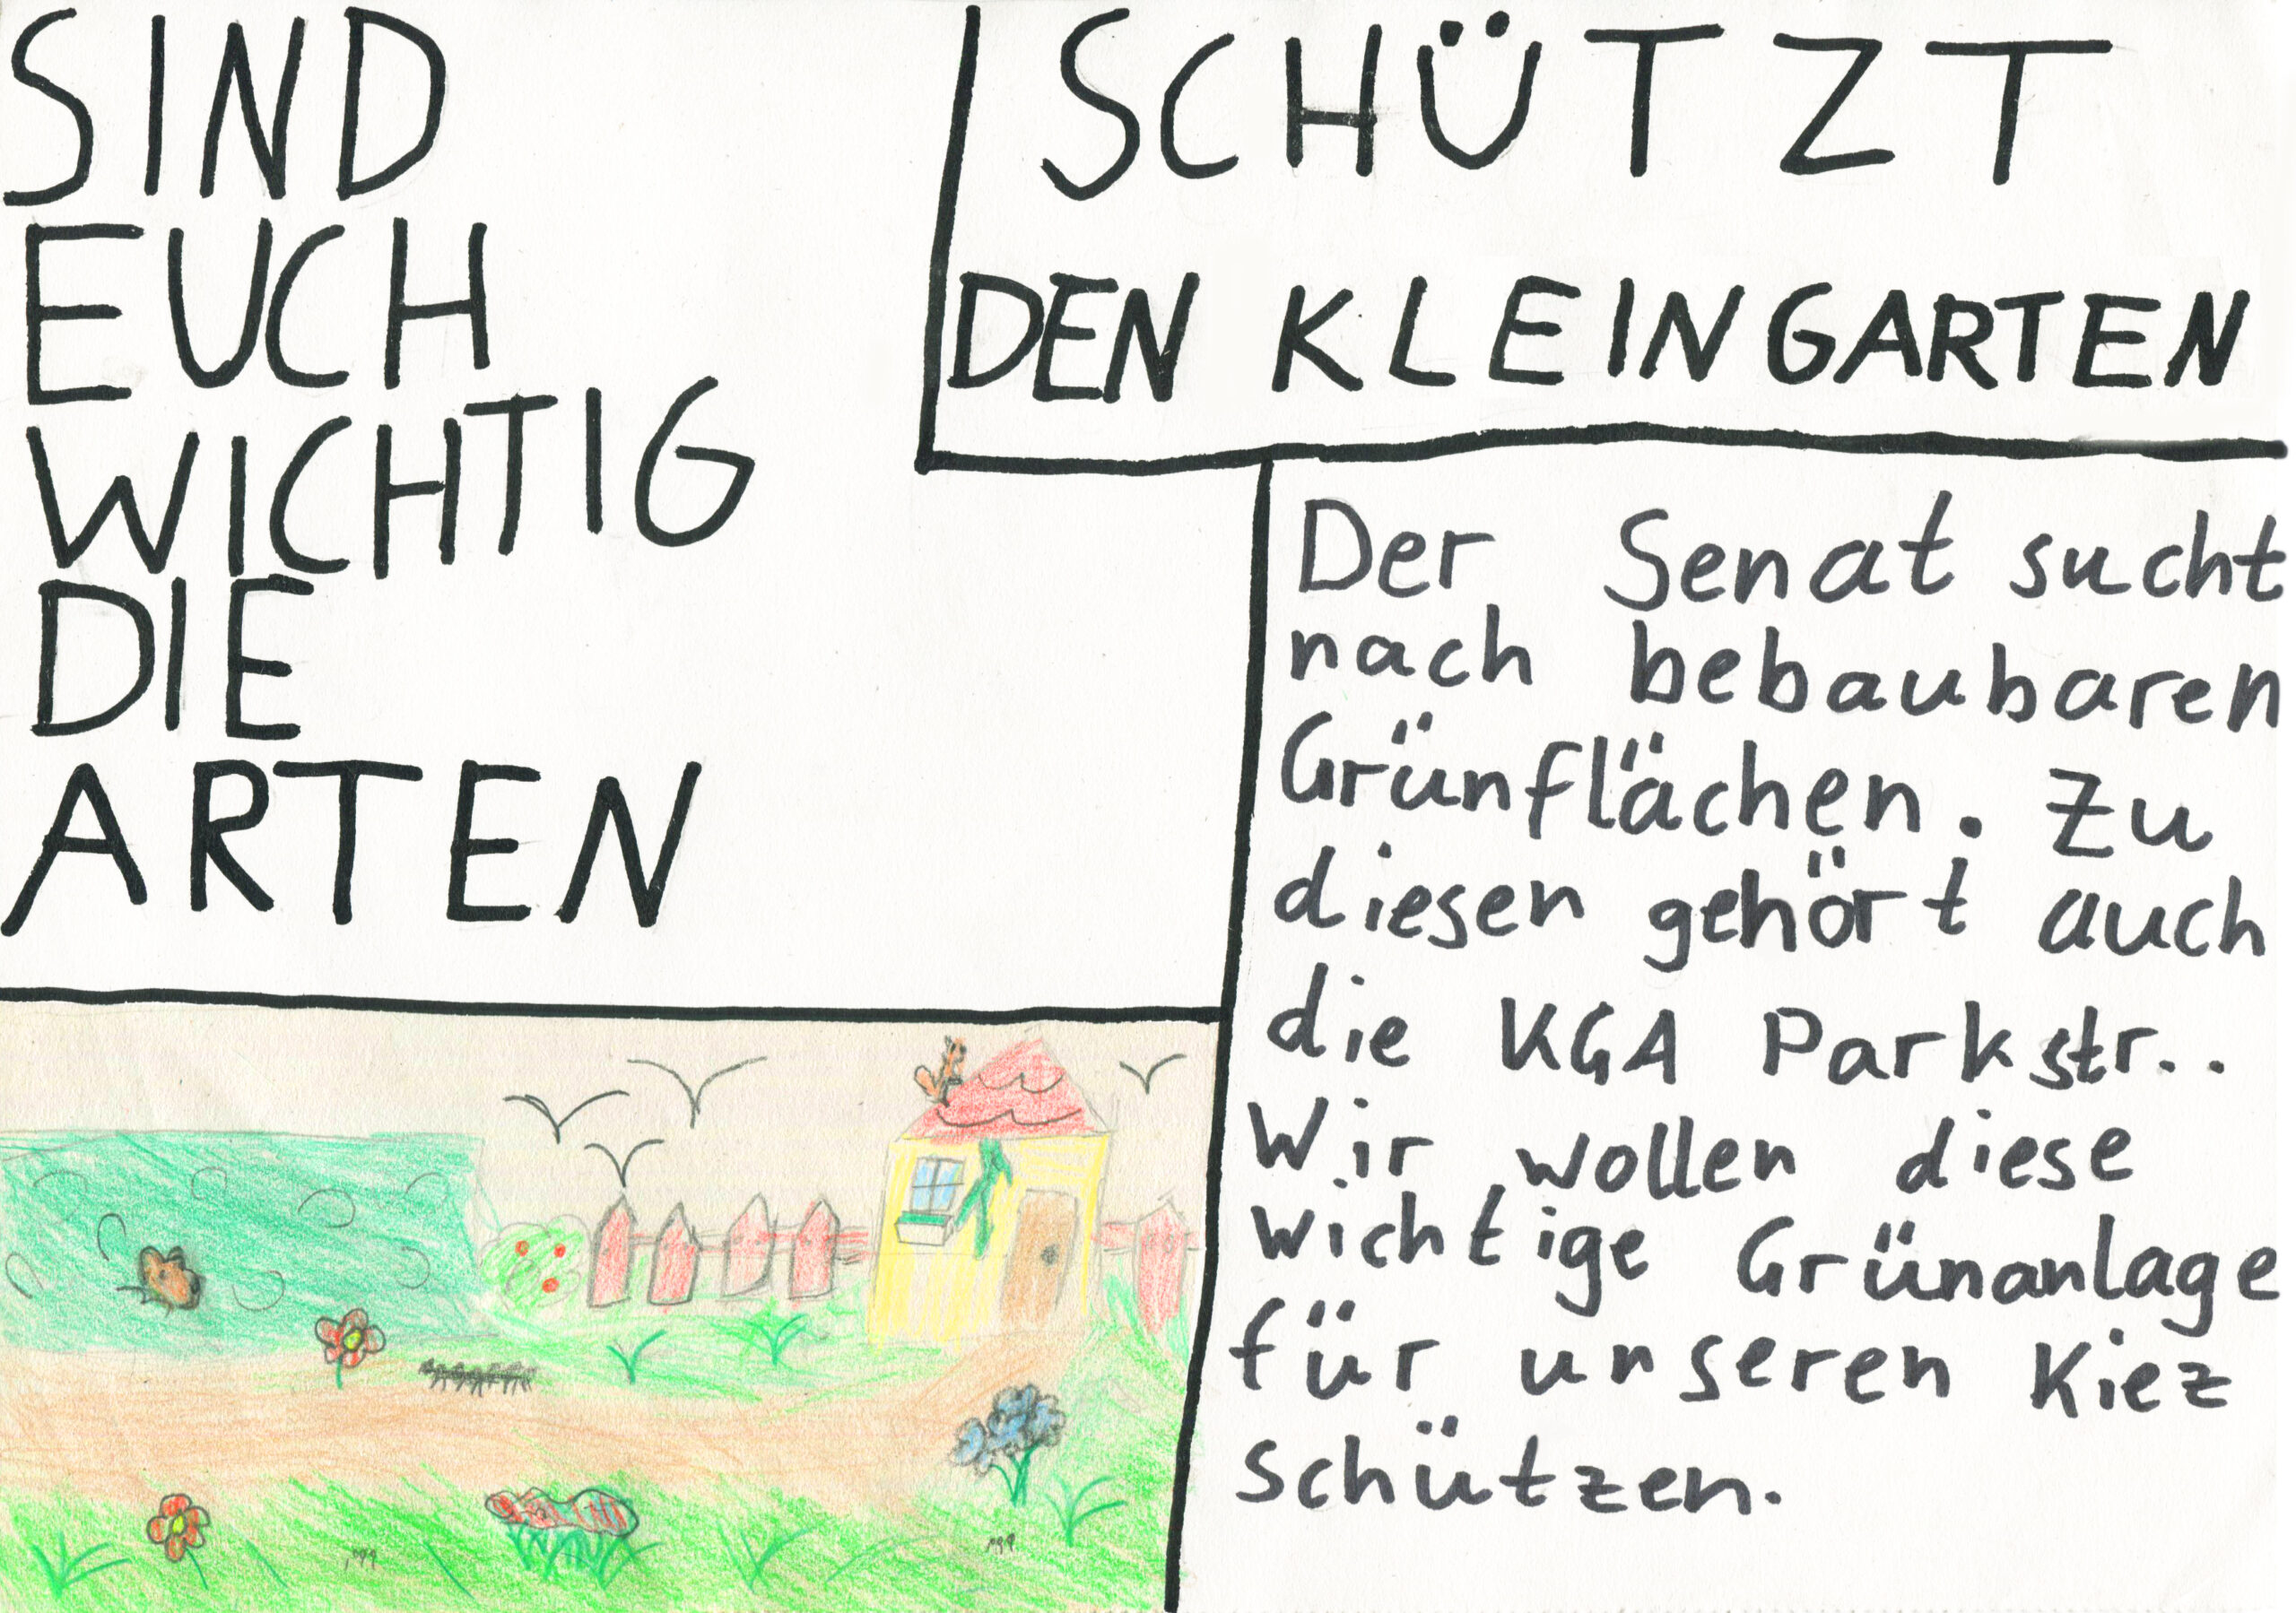 SIND
EUCH
WICHTIG
DIE
ARTEN
SCHÜTZT
DEN KLEINGARTEN
Der Senat sucht
nach bebaubaren
Grünflächen. Zu
diesen gehört auch
die KGA Parkstr..
Wir wollen diese
wichtige Grünanlage
für unseren Kiez
schützen.